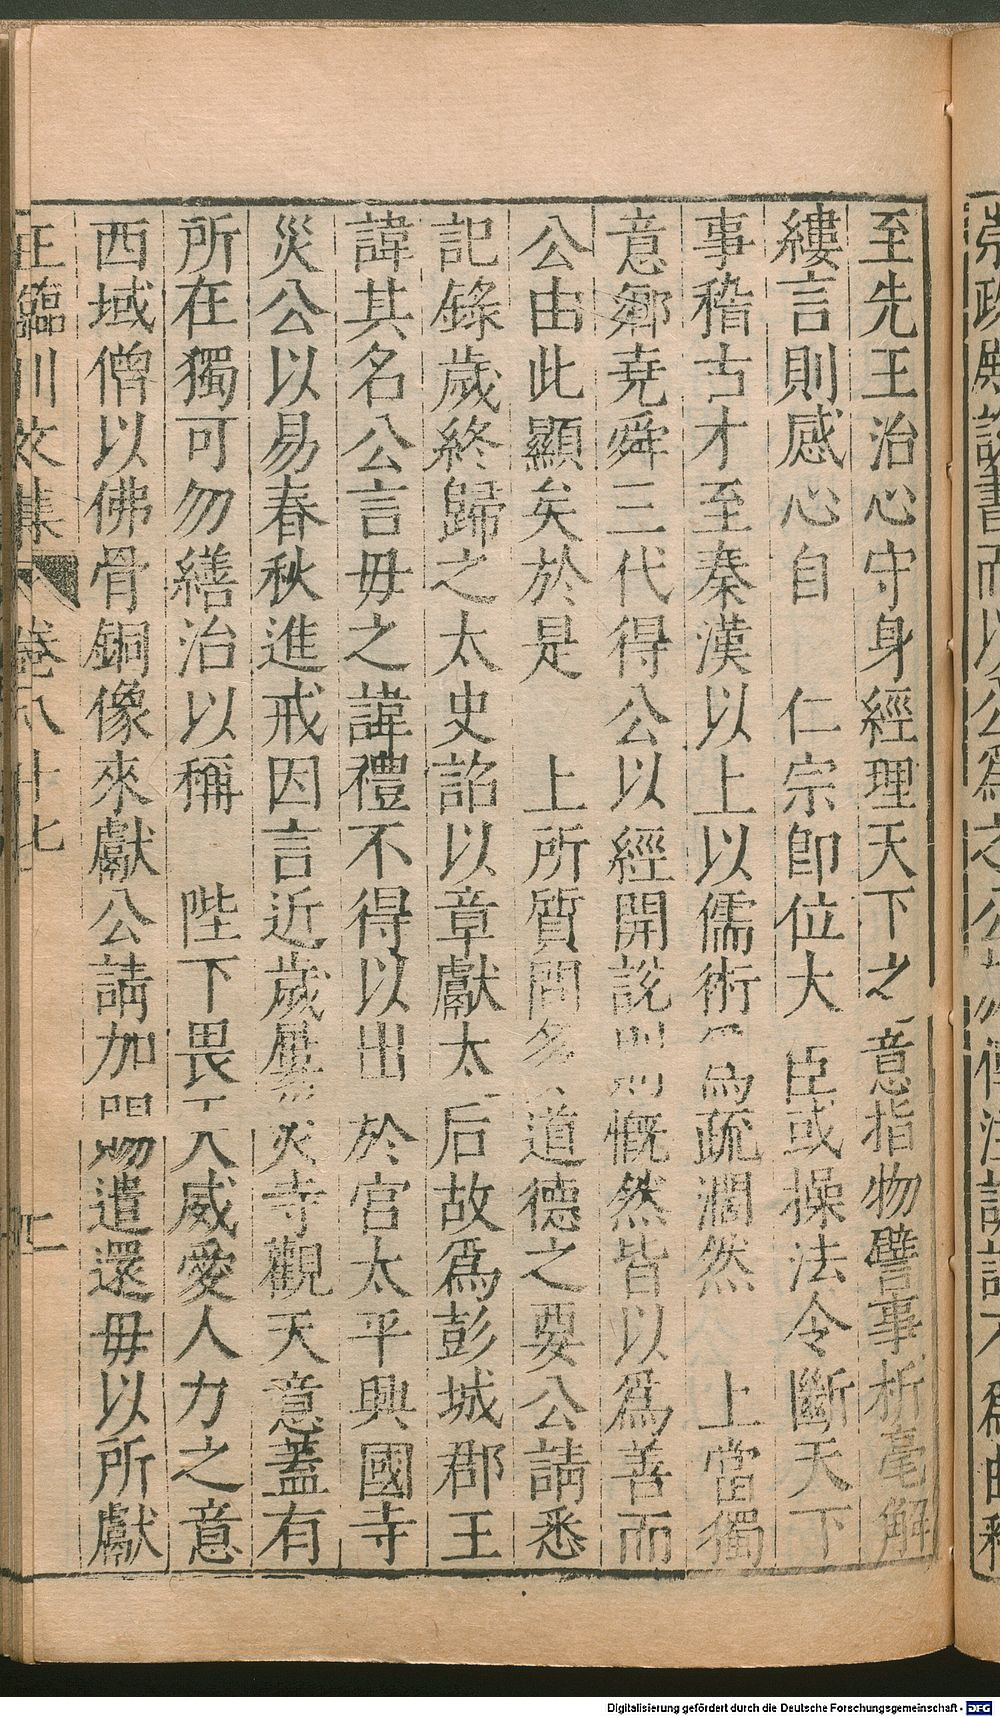 崇政殿說書而以公爲之公於傳注訓詁不爲曲釋
至先王治心守身經理天下之意指物譬事析毫解
縷言則感心自 仁宗卽位大臣或操法令斷天下
事稽古才至秦漢以上以儒術爲疏濶然 上當獨
意鄉堯舜三代得公以經開說則慨然皆以爲善而
公由此顯矣於是 上所質問多道德之要公請悉
記錄歲終歸之太史詔以章獻太后故爲彭城郡王
諱其名公言毋之諱禮不得以出於宮太平興國寺
災公以易春秋進戒因言近歲屢災寺觀天意蓋有
所在獨可勿繕治以稱 陛下畏天威愛人力之意
西域僧以佛骨銅像來獻公請加賜遣還毋以所獻
王臨川文集 卷八十七 二
Digitalisierung gefördert durch die Deutsche Forschungsgemeinschaft - DFG